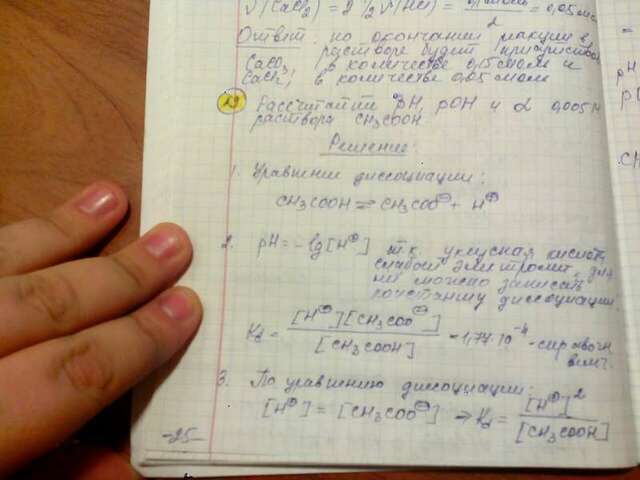 ν(CaCl₂) = 2 1/2 ν(HCl) = = 0,05 мо
2
Ответ: по окончании реакции в
растворе будет присутство
CaCO₃ в количестве 0,15 моль и
CaCl₂, в количестве 0,05 моль
19 Рассчитайти pH, pOH и α 0,005М
раствора CH₃COOH
Решение:
1. Уравнение диссоциации:
CH₃COOH ⇌ CH₃COO⊖ + H⊕
2. pH = -lg[H⊕] т.к. уксусная кислота
слабый электролит, для
неё можно записать
константу диссоциации.
Kд = [H⊕][CH₃COO⊖] / [CH₃COOH] = 1,77·10⁻⁴ - справочн
велич.
3. По уравнению диссоциации:
[H⊕] = [CH₃COO⊖] ⇒ Kд = [H⊕]² / [CH₃COOH]
-25-
=
pH
CH